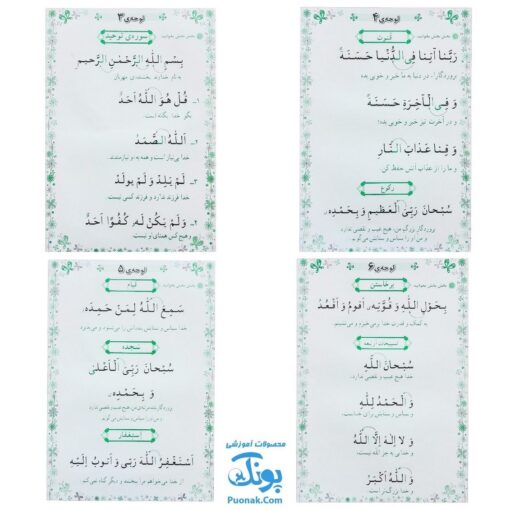 لوحه‌ی ۳
بخش بخش بخوانید.
سوره‌ی توحید
بِسْمِ اللّهِ الرَّحْمٰنِ الرَّحیمِ
به نام خداوند بخشنده‌ی مهربان
۱ـ قُلْ هُوَ اللّهُ اَحَدٌ
بگو خدا یگانه است.
۲ـ اَللّهُ الصَّمَدُ
خدا بی‌نیاز است و همه به او نیازمندند.
۳ـ لَمْ یَلِدْ وَ لَمْ یولَدْ
خدا فرزند ندارد و فرزند کسی نیست.
۴ـ وَ لَمْ یَکُنْ لَهُ کُفُوًا اَحَدٌ
و هیچ کس همتای او نیست.
لوحه‌ی ۴
بخش بخش بخوانید.
قنوت
رَبَّنا آتِنا فِی الدُّنْیا حَسَنَةً
پروردگارا، در دنیا به ما خیر و خوبی بده
وَ فِی الْآخِرَةِ حَسَنَةً
و در آخرت نیز خیر و خوبی بده!
وَ قِنا عَذابَ النّارِ
و ما را از عذاب آتش حفظ کن.
رکوع
سُبْحانَ رَبِّیَ الْعَظیمِ وَ بِحَمْدِهِ
پروردگار بزرگ من هیچ عیب و نقصی ندارد
و من او را سپاس و ستایش می‌گویم.
لوحه‌ی ۵
بخش بخش بخوانید.
قیام
سَمِعَ اللّهُ لِمَنْ حَمِدَه
خدا سپاس و ستایش بندگانش را می‌شنود و می‌پذیرد.
سجده
سُبْحانَ رَبِّیَ الْاَعْلیٰ
وَ بِحَمْدِهِ
و من او را سپاس و ستایش می‌گویم.
استغفار
اَسْتَغْفِرُ اللّهَ رَبّی وَ اَتوبُ اِلَیْهِ
از خدا می‌خواهم مرا ببخشد و دیگر گناه نمی‌کنم.
لوحه‌ی ۶
بخش بخش بخوانید.
برخاستن
بِحَوْلِ اللّهِ وَ قُوَّتِهِ اَقومُ وَ اَقْعُدُ
به کمک و قدرت خدا برمی‌خیزم و می‌نشینم.
تسبیحات اربعه
سُبْحانَ اللّهِ
خدا هیچ عیب و نقصی ندارد.
وَ الْحَمْدُ لِلّهِ
و سپاس و ستایش برای خداست.
وَ لا اِلٰهَ اِلَّا اللّهُ
و خدایی به جز الله نیست.
وَ اللّهُ اَکْبَرُ
و خدا بزرگ‌تر است.
محصولات آموزشی
پونک
Puonak.Com